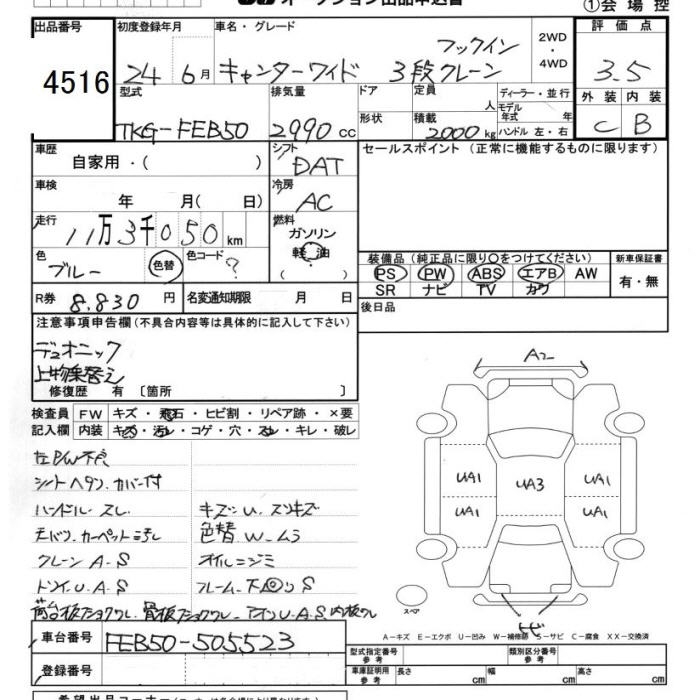 ①会場控
出品番号 4516
初度登録年月 24 6月
車名・グレード キャンターワイド フックイン 3段クレーン
2WD・4WD
評価点 3.5
外装 C 内装 B
型式 TKG-FEB50
排気量 2990cc
ドア 形状
定員 人
積載 2000kg
ディーラー・並行
モデル年式 年
ハンドル 左・右
車歴 自家用・( )
シフト DAT
セールスポイント (正常に機能するものに限ります)
車検 年 月( 日)
冷房 AC
走行 11万3千050km
燃料 ガソリン 軽油 ( )
色 ブルー 色替
色コード ?
装備品(純正品に限り○をつけてください)
新車保証書 有・無
PS PW ABS エアB AW
SR ナビ TV カワ
R券 8.830円
名変通知期限 月 日
後日品
注意事項申告欄(不具合内容等は具体的に記入して下さい)
デュオニック
上物乗替え
修復歴 有 〔箇所 〕
検査員 FW キズ・飛石・ヒビ割・リペア跡・×要
記入欄 内装 キズ・汚レ・コゲ・穴・スレ・キレ・破レ
左PW不良
シートヘタリ、カバー付
ハンドル スレ
キズ、U、スリキズ
天バリ、カーペット汚レ
色替 W、ムラ
クレーン A、S
オイルニジミ
ドソイ、U、A、S
フレーム、下回リS
車台番号 FEB50-505523
登録番号
A2
UA1 UA3 UA1
UA1 UA1
スペア
A-キズ E-エクボ U-凹み W-補修跡 S-サビ C-腐食 XX-交換済
型式指定番号 参考
類別区分番号 参考
車庫証明用 参考 長さ cm 幅 cm 高さ cm